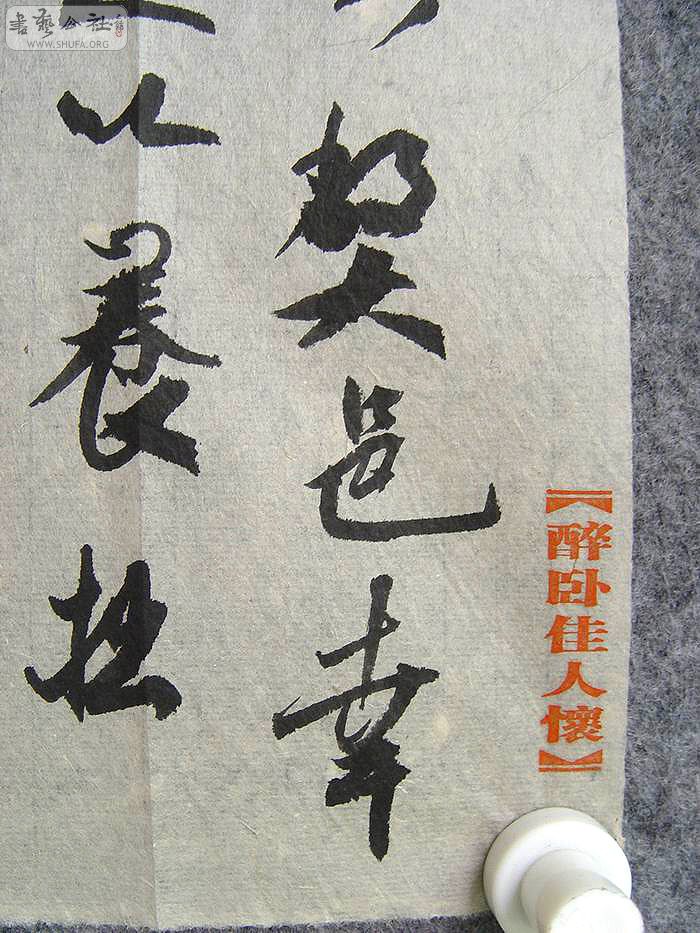 書藝公社
WWW.SHUFA.ORG
弊邑幸
以養拙
【醉卧佳人懷】